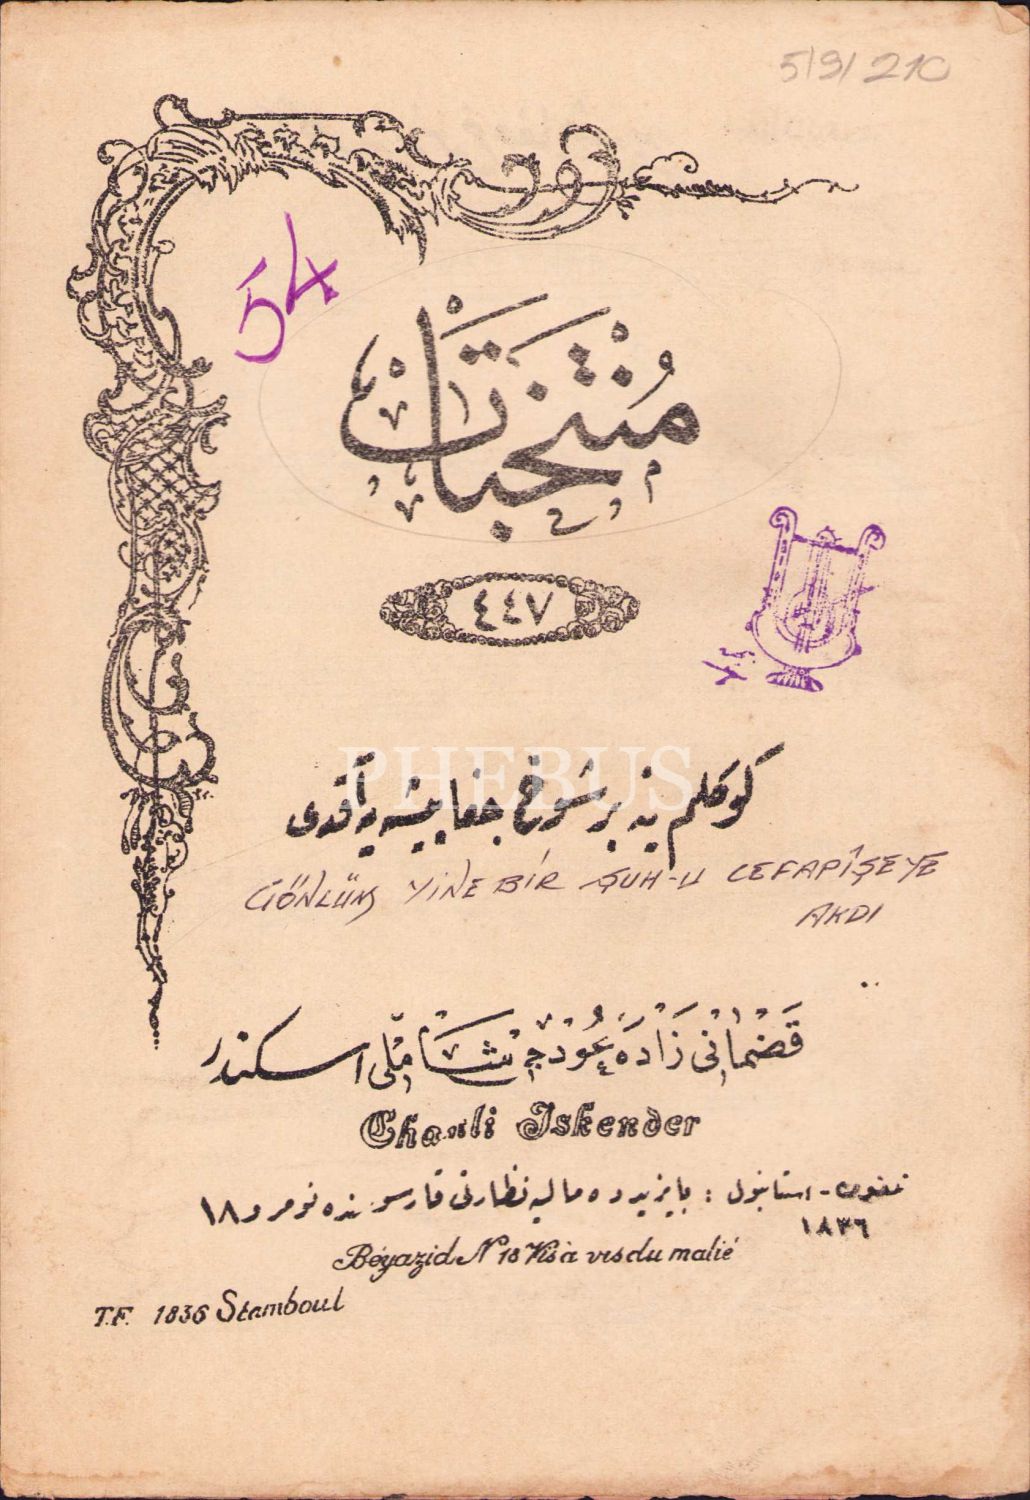 5/9/210
54
مُنْتَخَبَات
٤٤٧
PHEBUS
كوكلم ينه بر شوخ جفا پيشه يه آقدى
GÖNLÜM YİNE BİR ŞUH-U CEFAPİŞEYE
AKDI
قضمانى زاده عودجى شاملى اسكندر
Chamli Iskender
تلفون - استانبول : بايزيدده ماليه نظارتى قارسوسنده نومرو ١٨
١٨٣٦
Béyazid N 18 Vis à vis du malié
T.F. 1836 Stamboul